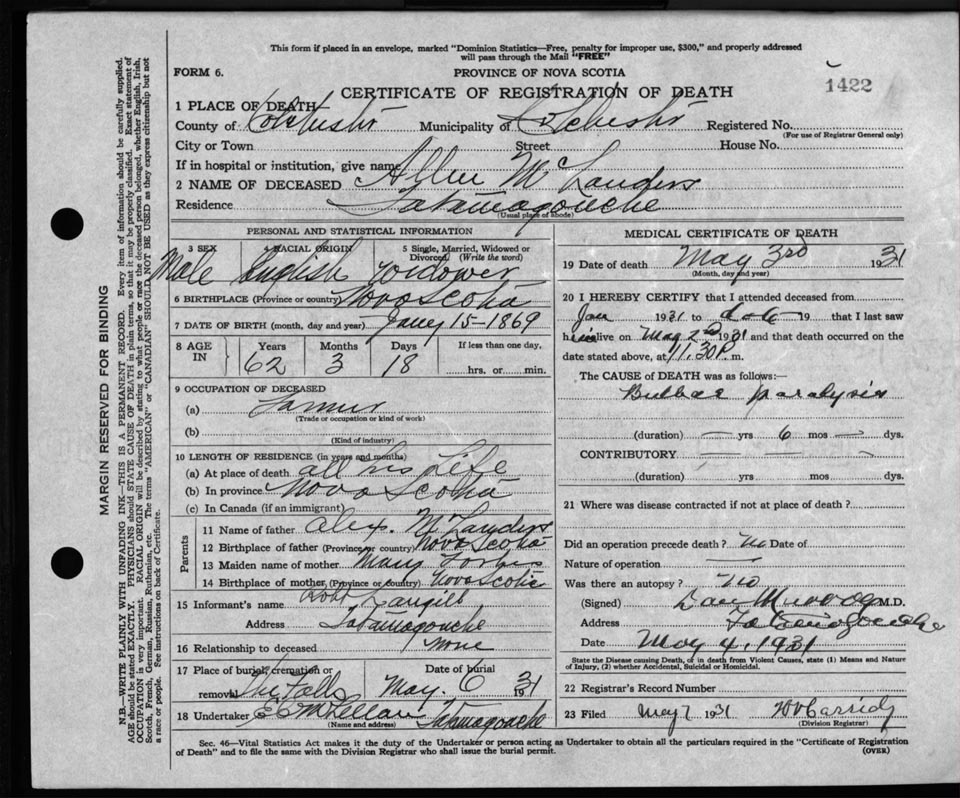 This form if placed in an envelope, marked "Dominion Statistics—Free, penalty for improper use, $300," and properly addressed
will pass through the Mail "FREE"
FORM 6.
PROVINCE OF NOVA SCOTIA
1422
CERTIFICATE OF REGISTRATION OF DEATH
1 PLACE OF DEATH
County of Colchester Municipality of Colchester Registered No.
(For use of Registrar General only)
City or Town Street House No.
If in hospital or institution, give name
2 NAME OF DECEASED McLanders
Residence Tatamagouche
(Usual place of abode)
PERSONAL AND STATISTICAL INFORMATION
3 SEX 4 RACIAL ORIGIN 5 Single, Married, Widowed or Divorced (Write the word)
Male English Widower
6 BIRTHPLACE (Province or country) Nova Scotia
7 DATE OF BIRTH (month, day and year) Jany 15-1869
8 AGE IN Years Months Days If less than one day,
62 3 18 hrs. or min.
9 OCCUPATION OF DECEASED
(a) Farmer
(Trade or occupation or kind of work)
(b)
(Kind of industry)
10 LENGTH OF RESIDENCE (in years and months)
(a) At place of death all his Life
(b) In province Nova Scotia
(c) In Canada (if an immigrant)
Parents
11 Name of father Alex. McLanders
12 Birthplace of father (Province or country) Nova Scotia
13 Maiden name of mother Mary Forbes
14 Birthplace of mother (Province or country) Nova Scotia
15 Informant's name Robt Langill
Address Tatamagouche
16 Relationship to deceased None
17 Place of burial, cremation or removal The Falls
Date of burial May. 6 1931
18 Undertaker E C McLellan Tatamagouche
(Name and address)
MEDICAL CERTIFICATE OF DEATH
19 Date of death May 3rd 1931
(Month, day and year)
20 I HEREBY CERTIFY that I attended deceased from
Jan 1931 to 19 that I last saw
him alive on May 2nd 1931 and that death occurred on the
date stated above, at 11.30 P. m.
The CAUSE of DEATH was as follows:—
Bulbar paralysis
(duration) — yrs 6 mos — dys.
CONTRIBUTORY — —
(duration) yrs mos dys.
21 Where was disease contracted if not at place of death?
Did an operation precede death? no Date of
Nature of operation —
Was there an autopsy? no
(Signed) Dan Murray M.D.
Address Tatamagouche
Date May 4, 1931
State the Disease causing Death, or in death from Violent Causes, state (1) Means and Nature
of Injury, (2) whether Accidental, Suicidal or Homicidal.
22 Registrar's Record Number
23 Filed May 7 1931 Cassidy
(Division Registrar)
Sec. 46—Vital Statistics Act makes it the duty of the Undertaker or person acting as Undertaker to obtain all the particulars required in the "Certificate of Registration
of Death" and to file the same with the Division Registrar who shall issue the burial permit.
(OVER)
MARGIN RESERVED FOR BINDING
N.B.—WRITE PLAINLY WITH UNFADING INK—THIS IS A PERMANENT RECORD. Every item of information should be carefully supplied.
AGE should be stated EXACTLY. PHYSICIANS should STATE CAUSE OF DEATH in plain terms, so that it may be properly classified. Exact statement of
OCCUPATION is very important. RACIAL ORIGIN will be described by stating to what people or race the deceased person belonged, whether English, Irish,
Scotch, French, German, Russian, Ruthenian, etc. The terms "AMERICAN" or "CANADIAN" SHOULD NOT BE USED as they express citizenship but not
a race or people. See instructions on back of Certificate.